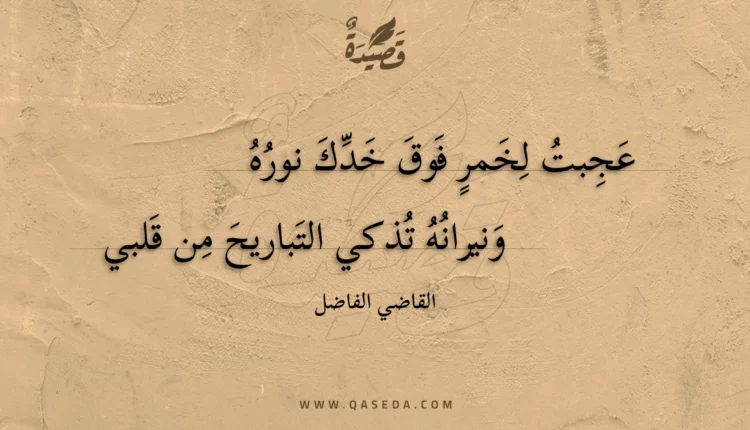 قَصِيْدَةٌ
عَجِبتُ لِخَمرٍ فَوقَ خَدِّكَ نورُهُ
وَنيرانُهُ تُذكي التَباريحَ مِن قَلبي
القاضي الفاضل
WWW.QASEDA.COM